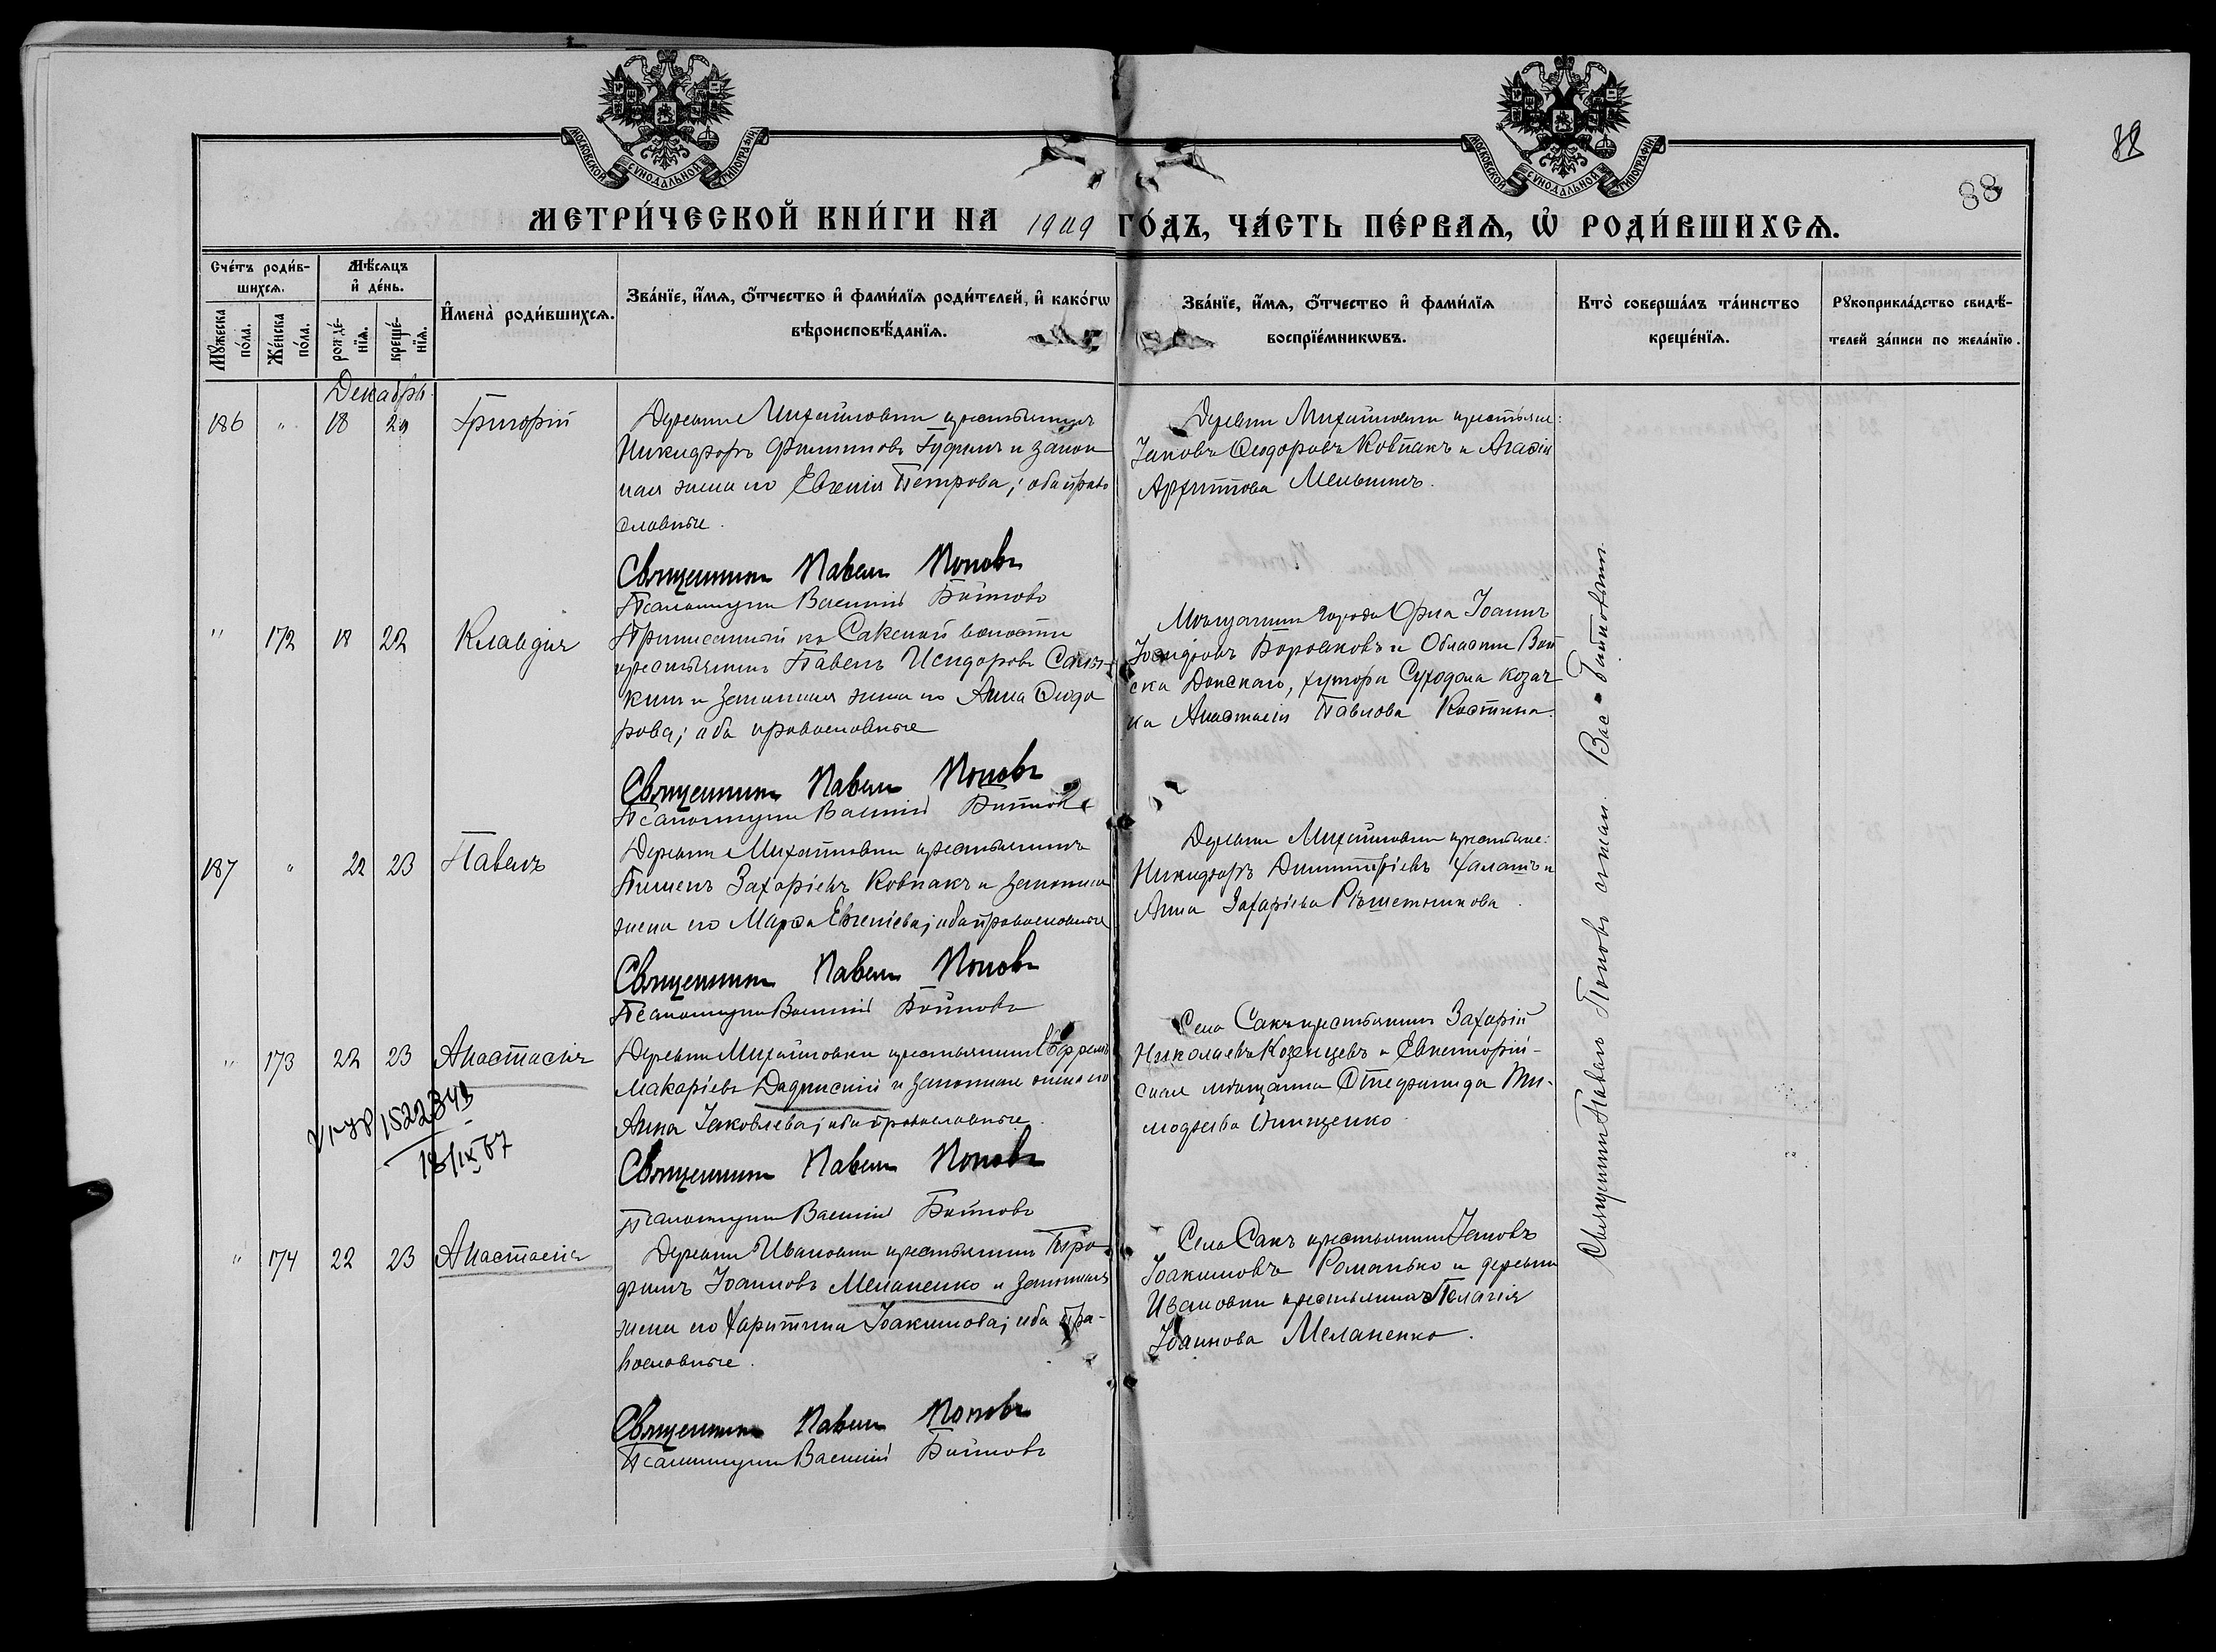 МОСКОВСКОЙ СѴНОДАЛЬНОЙ ТИПОГРАФІИ
МОСКОВСКОЙ СѴНОДАЛЬНОЙ ТИПОГРАФІИ
88
МЕТРИ́ЧЕСКОЙ КНИ́ГИ НА 1909 ГО́ДЪ, ЧА́СТЬ ПЕ́РВАѦ, Ѡ҆ РОДИ́ВШИХСѦ.
Сче́тъ роди́в-
шихсѧ.
Мѣ́сѧцъ
и҆ де́нь.
Мꙋ́жеска по́ла.
Же́нска по́ла.
рожде́-
нїѧ.
креще́-
нїѧ.
И҆мена̀ роди́вшихсѧ.
Зва́нїе, и҆́мѧ, ѻ҆́тчество и҆ фами́лїѧ роди́телей, и҆ како́гѡ
вѣроисповѣ́данїѧ.
Зва́нїе, и҆́мѧ, ѻ҆́тчество и҆ фами́лїѧ
воспрїе́мникѡвъ.
Кто̀ соверша́лъ та́инство
креще́нїѧ.
Рꙋкоприкла́дство свидѣ́-
телей за́писи по жела́нїю.
Декабрь.
186 " 18 20 Григорій
Деревни Михайловки крестьянинъ
Никифоръ Филипповъ Гудимъ и закон
ная жена его Евгенія Петрова; оба право
славные.
Священникъ Павелъ Поповъ
Псаломщикъ Василій
Деревни Михайловки крестьяне:
Іаковъ Ѳеодоровъ Ковпакъ и Агаѳія
Архиппова
" 172 18 22 Клавдія
Приписанный къ Сакской волости
крестьянинъ Павелъ Исидоровъ
и законная жена его Анна Ѳеодо
рова; оба православные
Священникъ Павелъ Поповъ
Псаломщикъ Василій
Мѣщанинъ города Орла Іоаннъ
Іосифовъ Боровковъ и Области Вой
ска Донскаго, хутора Суходола козач
ка Анастасія Павлова Костина.
187 " 22 23 Павелъ
Деревни Михайловки крестьянинъ
Пименъ Захаріевъ Ковпакъ и законная
жена его Марѳа Евгеніева; оба православные
Священникъ Павелъ Поповъ
Псаломщикъ Василій
Деревни Михайловки крестьяне:
Никифоръ Димитріевъ Халашъ и
Анна Захаріева Рѣшетникова.
" 173 22 23 Анастасія
Деревни Михайловки крестьянинъ Ефремъ
Макаріевъ и законная жена его
Анна Іаковлева; оба православные.
Священникъ Павелъ Поповъ
Псаломщикъ Василій
Села Сакъ крестьянинъ Захарій
Николаевъ Козенцевъ и Евпаторій-
ская мѣщанка Стефанида Ти-
моѳеева Онищенко
1522343
18/IX 67
" 174 22 23 Анастасія
Деревни Ивановки крестьянинъ Тро
фимъ Іоанновъ Меланенко и законная
жена его Харитина Іоакимова; оба пра-
вославные.
Священникъ Павелъ Поповъ
Псаломщикъ Василій
Села Сакъ крестьянинъ Іаковъ
Іоакимовъ Романько и деревни
Ивановки крестьянка Пелагія
Іоаннова Меланенко.
Священникъ Павелъ Поповъ